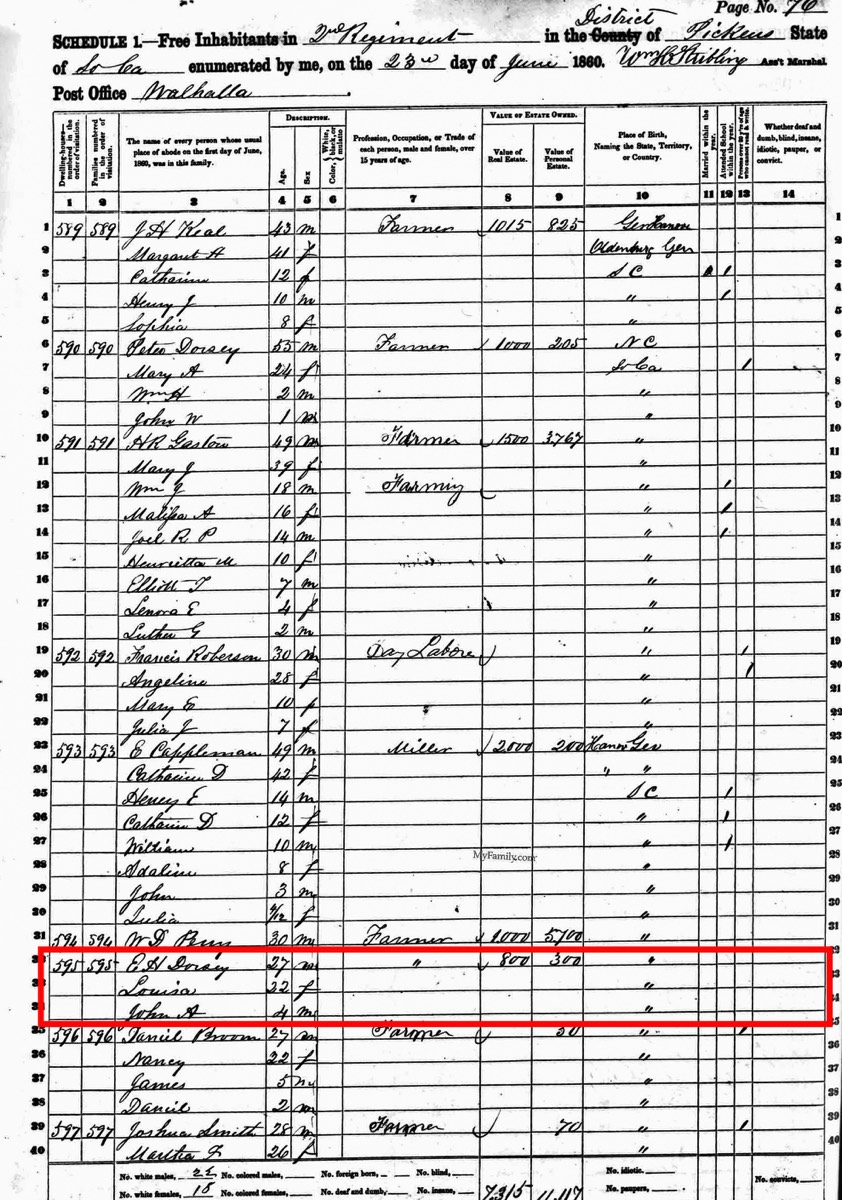 Page No. 76
SCHEDULE 1.—Free Inhabitants in 2nd Regiment in the County District of Pickens State
of So Ca enumerated by me, on the 23rd day of June 1860. Wm H Stribling Ass't Marshal
Post Office Walhalla
DESCRIPTION. VALUE OF ESTATE OWNED.
Dwelling-houses numbered in the order of visitation. Families numbered in the order of visitation. The name of every person whose usual place of abode on the first day of June, 1860, was in this family. Age. Sex Color, White, black, or mulatto Profession, Occupation, or Trade of each person, male and female, over 15 years of age. Value of Real Estate. Value of Personal Estate. Place of Birth, Naming the State, Territory, or Country. Married within the year. Attended School within the year. Persons over 20 y'rs of age who cannot read & write. Whether deaf and dumb, blind, insane, idiotic, pauper, or convict.
1 2 3 4 5 6 7 8 9 10 11 12 13 14
1 589 589 J H Keal 43 m Farmer 1015 825 Ger Hanov 1
2 Margaret A 41 f Oldenburg Ger 2
3 Catharine 12 f S C 1 3
4 Henry J 10 m " 1 4
5 Sophia 8 f " 5
6 590 590 Peter Dorsey 55 m Farmer 1000 205 N C 6
7 Mary A 24 f So Ca 1 7
8 Wm H 2 m " 8
9 John W 1 m " 9
10 591 591 H R Gaston 49 m Farmer 1500 3767 " 10
11 Mary J 39 f " 11
12 Wm J 18 m Farming " 1 12
13 Malissa A 16 f " 1 13
14 Joel R P 14 m " 1 14
15 Henrietta M 10 f " 15
16 Elliott T 7 m " 16
17 Lenora E 4 f " 17
18 Luther G 2 m " 18
19 592 592 Francis Roberson 30 m Day Labore " 1 19
20 Angeline 28 f " 1 20
21 Mary E 10 f " 21
22 Julia J 7 f " 22
23 593 593 E Cappleman 49 m Miller 2000 200 Hanov Ger 23
24 Catharine D 42 f " " 24
25 Henry E 14 m S C 1 25
26 Catharin D 12 f " 1 26
27 William 10 m " 1 27
28 Adaline 8 f " 28
MyFamily.com
29 John 3 m " 29
30 Julia /12 f " 30
31 594 594 W D 30 m Farmer 1000 5700 " 31
32 595 595 E H Dorsey 27 m " 800 300 " 33
Louisa 22 f " 34
John A 4 m "
35 596 596 Daniel Broom 27 m Farmer 50 " 1 35
36 Nancy 22 f " 36
37 James 5 m " 37
38 Daneil 2 m " 38
39 597 597 Joshua Smith 28 m Farmer 70 " 1 39
40 Martha F 26 f " 40
No. white males, 22 No. colored males, No. foreign born, No. blind, No. idiotic,
No. white females, 18 No. colored females, No. deaf and dumb, No. insane, 7315 11,117 No. paupers, No. convicts,